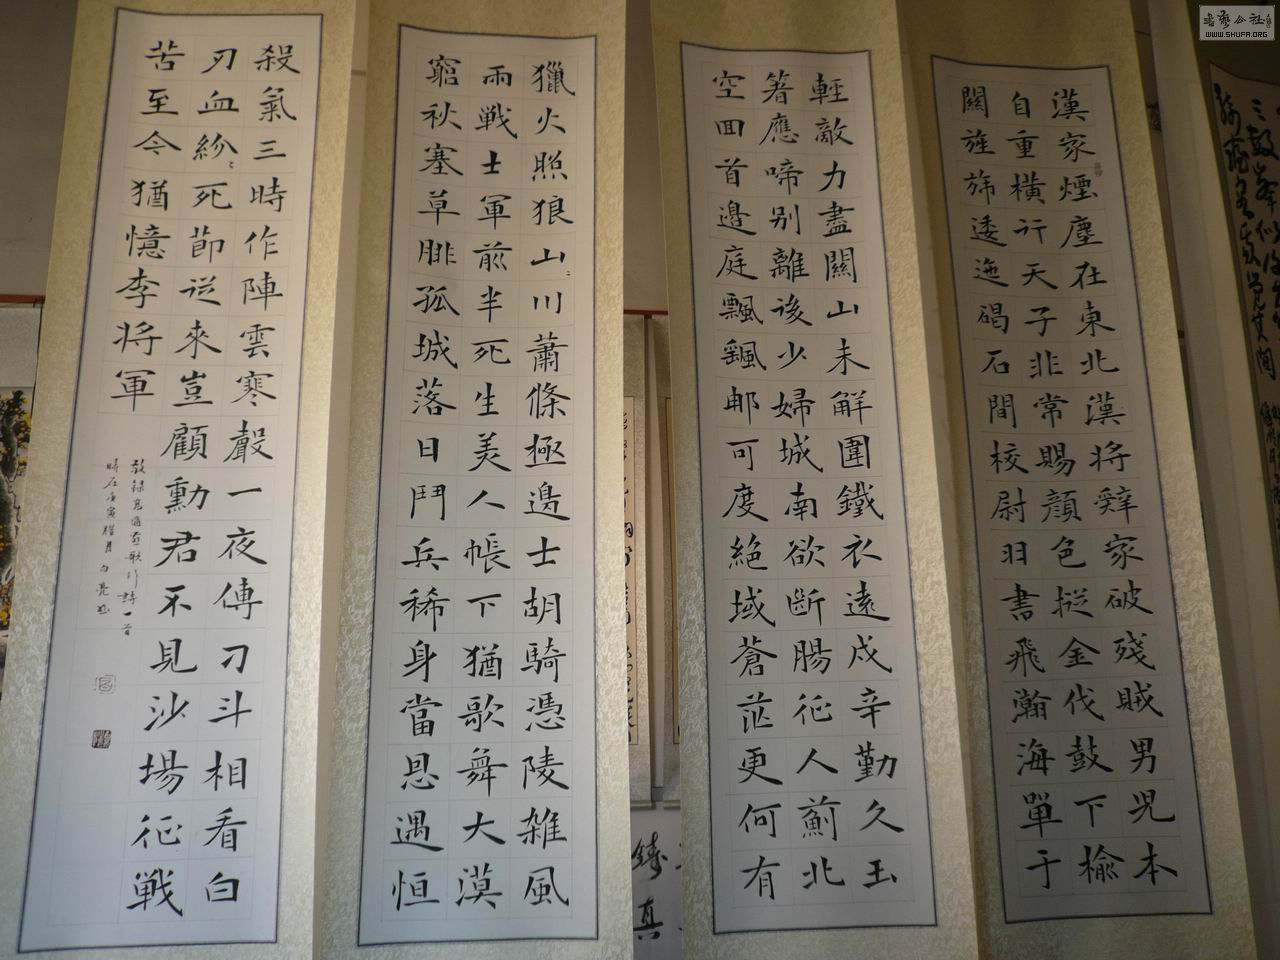 漢家煙塵在東北漢將辤家破殘賊男児本
自重橫行天子非常賜顔色摐金伐鼓下榆
關旌斾逶迤碣石間校尉羽書飛瀚海單于
輕敵力盡關山未解圍鐵衣遠戍辛勤久玉
箸應啼别離後少婦城南欲斷腸征人薊北
空回首邊庭飄颻那可度絕域蒼茫更何有
獵火照狼山〻川蕭條極邊士胡騎憑陵雑風
雨戦士軍前半死生美人帳下猶歌舞大漠
窮秋塞草腓孤城落日鬥兵稀身當恩遇恒
殺氣三時作陣雲寒聲一夜傳刁斗相看白
刃血紛〻死節從來豈顧勳君不見沙場征戦
苦至今猶憶李将軍
敬錄高適燕歌行詩一首
時在庚寅臘月
書藝公社
WWW.SHUFA.ORG